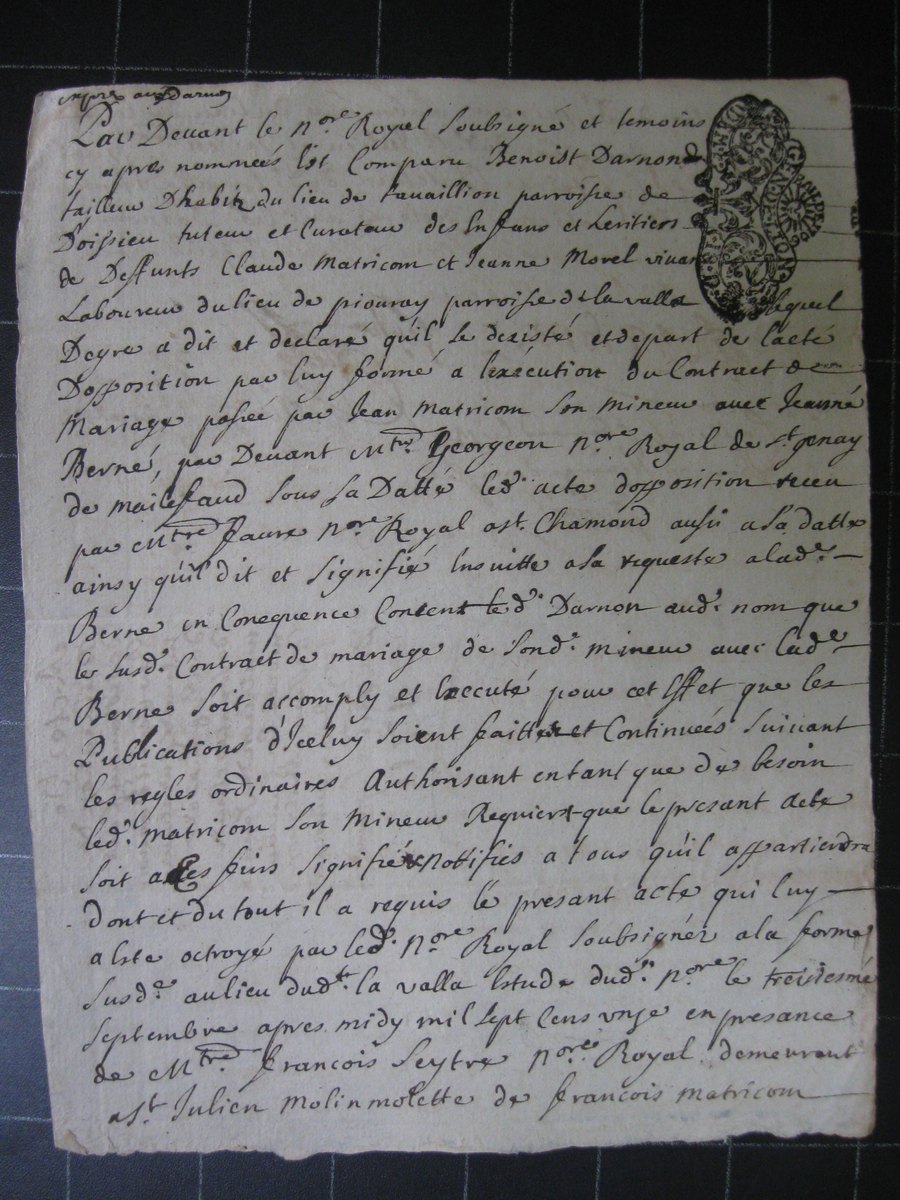 Par Devant le nore Royal soubsigné et temoins
cy apres nommées Est Comparu Benoist Darnond
tailleur Dhabitz du lieu de tavaillion parroisse de
Doissieu tuteur et Curateur des Enfans et heritiers
de Deffunts Claude Matricom et Jeanne Morel vivan
Laboureur du lieu de piouray parroisse de la valla lequel
Degre a dit et declaré quil se desisté et depart de lacte
Dopposition par luy formé a lexécution du Contract de
Mariage passée par Jean Matricom son mineur avec Jeanné
Berné, par Devant Mtre Georgeon nore Royal de st genay
de maliffaud sous sa Datté led. acte dopposition receu
par Mtre faure nore Royal a st. Chamond aussi a sa datte
ainsy quil dit et signifié Ensuitte a sa requeste a lade.
Berne en Consequence Consent led. Darnon aud. nom que
le susd. Contract de mariage de sond. mineur avec lade
Berne soit accomply et Executé pour cet Effet que les
Publications d'Iceluy soient faittes et Continueés suivant
les regles ordinaires Authorisant entant que de besoin
led. Matricom son Mineur Requiert que le presant Acte
soit a Ces fins signifié & nottifiés a tous qu'il appartiendra
dont et du tout il a requis le presant acte qui luy
a Este octroyé par led. nore Royal soubsignér a la forme
susde au lieu dudt. la valla Estude dud. nore le treisiesme
septembre apres midy mil sept Cens unze en presance
de Mtre francois Seytre nore Royal demeurant
a st. Julien Molinmolette de francois Matricom